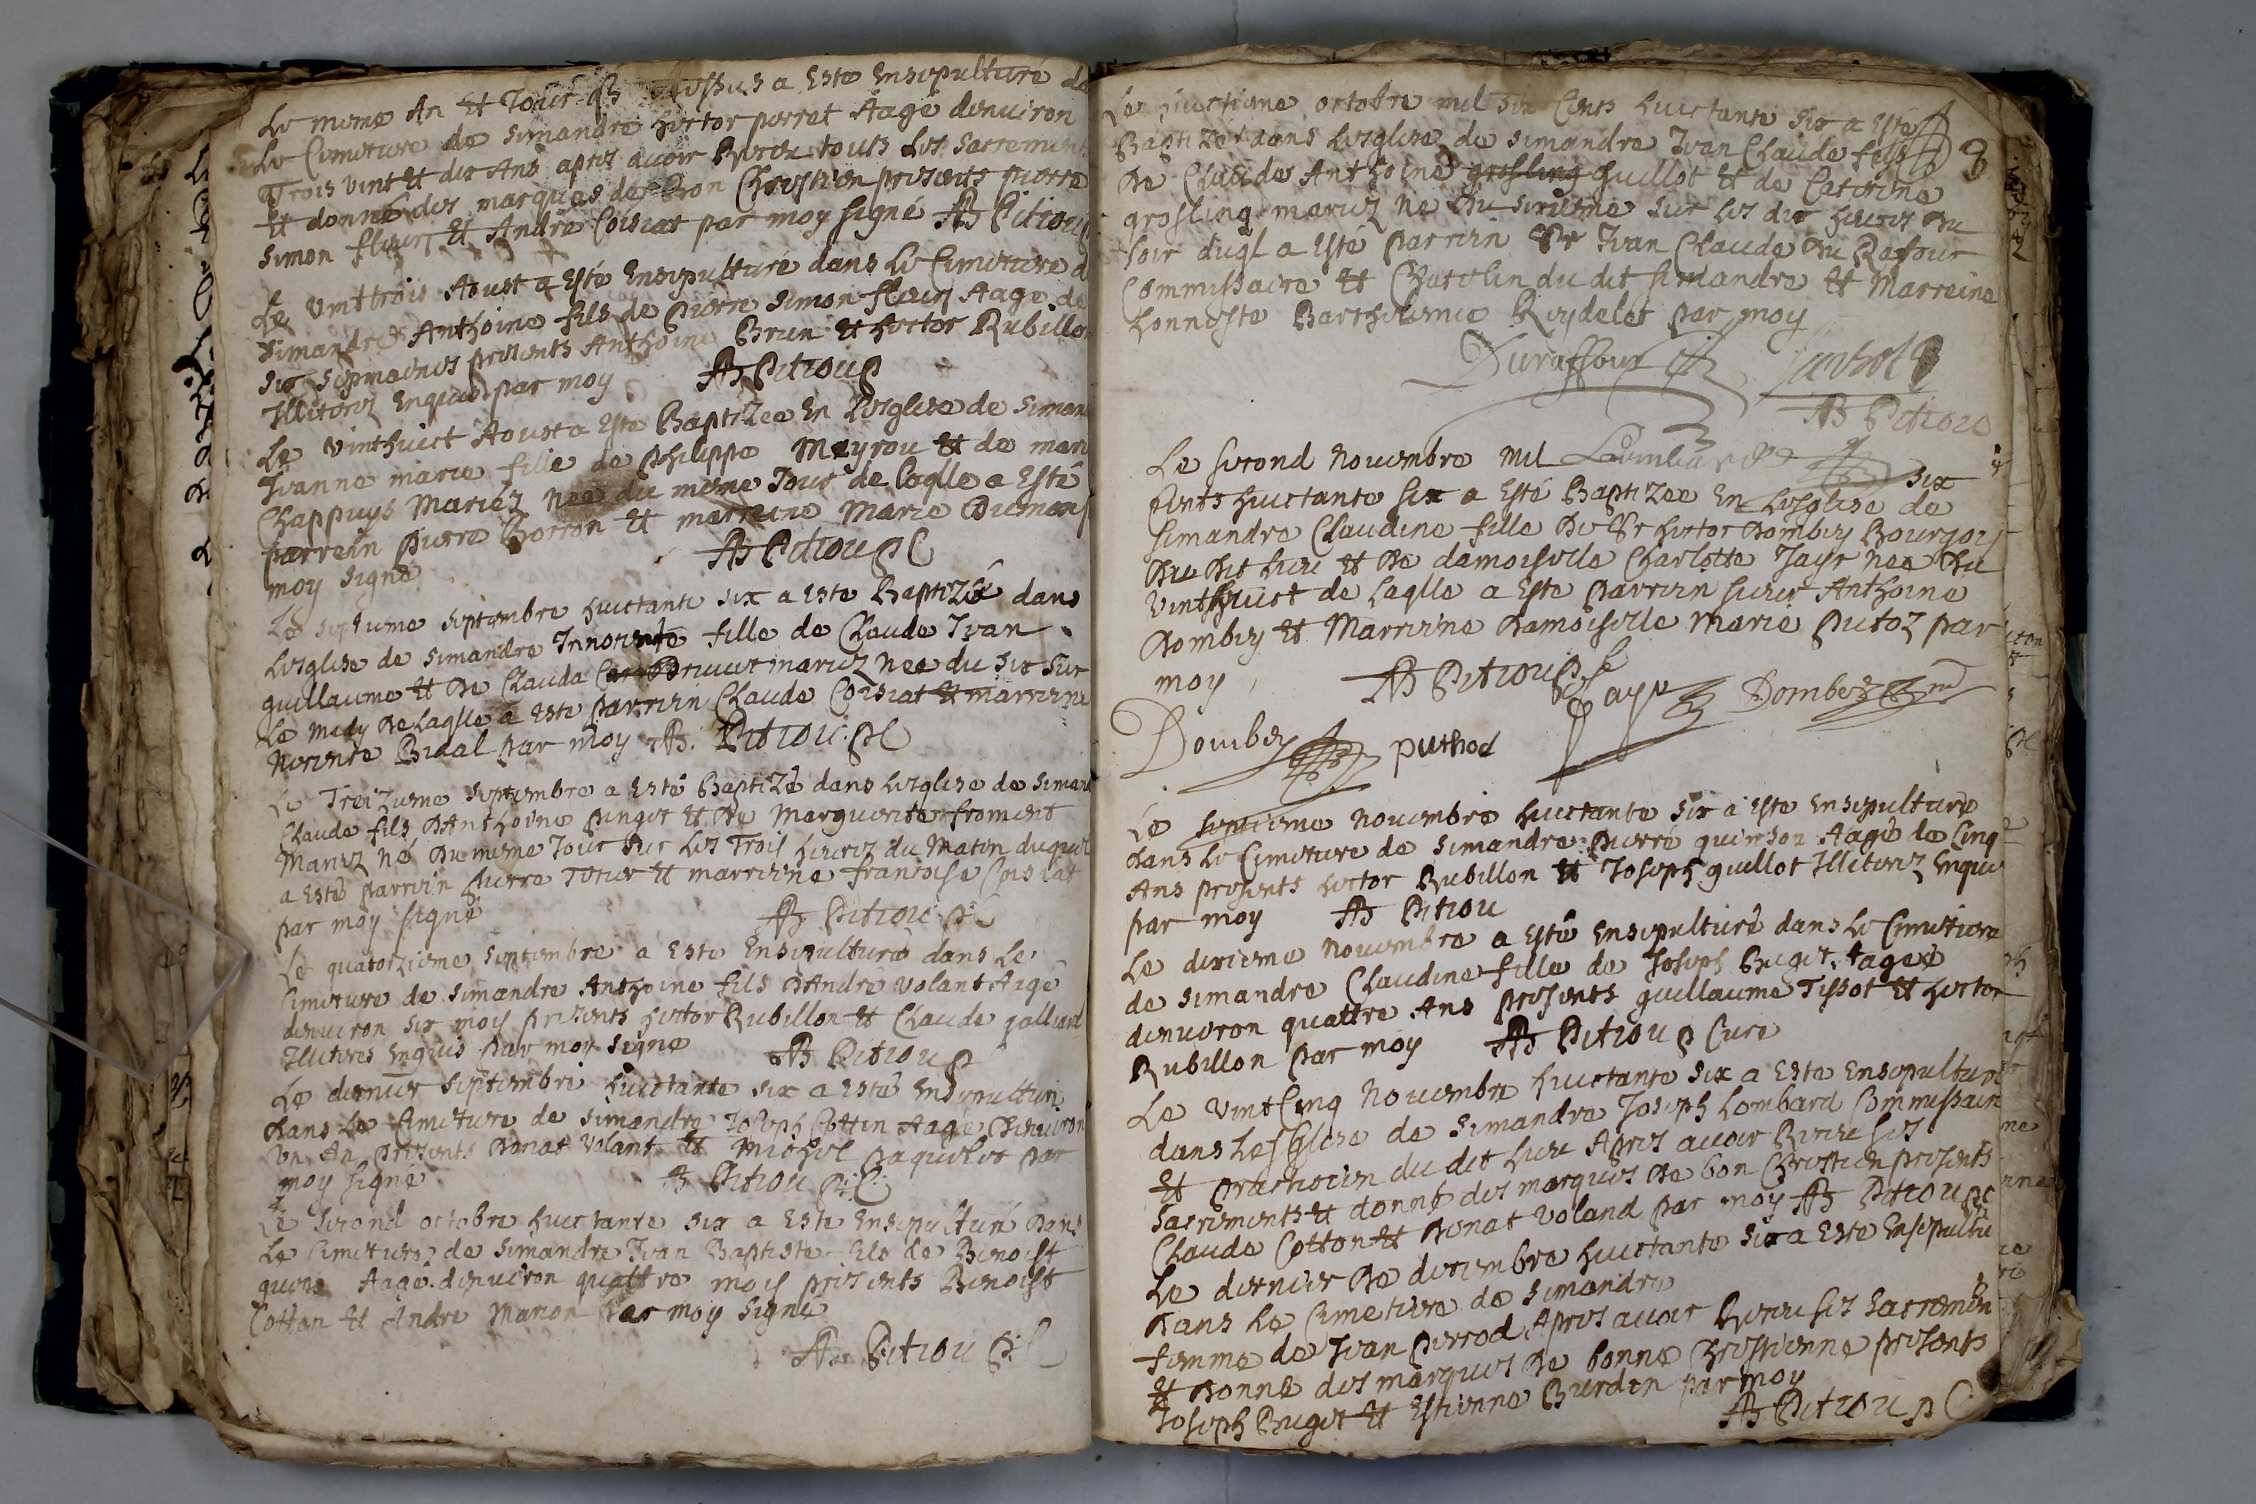 Le meme An et Jour que dessus a Esté Ensepulturé da
Le Cimetiere de Simandre hector perret Aagé denuiron
Trois vint et dix Ans apres auoir Receu touts les Sacrements
et donné des marques de bon Chrestien presents pierre
Simon fleury et André Coisiat par moy signé AB Pitiou
Le vint trois Aoust a Esté Ensepulturé dans le Cimetiere d
Simandre Anthoine fils de Pierre Simon fleury Aagé de
six sepmaines presents Anthoine Brun et hector Rubillon
Illiterez Enquis par moy AB Pitiou p
Le vinthuict Aoust a Esté Baptizee En Lesglise de Siman
Jeanne marie fille de Philippe Meyrou et de mari
Chappuys Mariéz née du meme Jour de laqlle a Esté
parrein Pierre Borron et marreine Marie
moy signé AB Pitiou p C
Le septieme septembre huictante six a Esté Baptizée dans
Lesglise de Simandre Innocente fille de Claude Jean
guillaume et de Clauda mariez née du six sur
Le midy de laqlle a Esté Parrein Claude Coisiat et marreine
Bidal par moy AB. Pitiou p C
Le Treizieme septembre a Esté Baptizé dans lesglise de Siman
Claude fils d'Anthoine pinget et de Marguerite froment
Mariez né du meme Jour sur les Trois heures du Matin duquel
a Esté parrein pierre Tetier et marreine francoise Coisiat
par moy signé AB Pitiou p C
Le quatorzieme septembre a Esté Ensepulturé dans le
Cimetiere de Simandre Anthoine fils d'André volant Aagé
denuiron six mois presents hector Rubillon et Claude galliard
Illiterés Enquis par moy signé AB Pitiou p
Le dernier septembre huictante six a Esté Ensepulturé
dans Le Cimetiere de Simandre Joseph Cottin Aagé denuiron
un An presents Donat Volant et Michel paquelet par
moy signé AB Pitiou p: C:
Le second octobre huictante six a Esté Ensepulturé dans
Le Cimetiere de Simandre Jean Baptiste fils de Benoist
Aagé denuiron quattre mois presents Benoist
Cottan et Andre Manon par moy signé
AB Pitiou p: C
Le huictieme octobre mil six Cents huictante six a Esté
Baptizé dans lesglise de Simandre Jean Claude fils
de Claude Anthoine grosling guillot et de Caterine
grosling mariez né du sixieme sur les dix heures du
soir duql a Esté parrein Sr Jean Claude du Rafour
Commissaire et Chatelin du dit Simandre et Marreine
honneste Barthelemie Reydelet par moy
Duraffour
AB Pitiou
Le second Nouembre mil six
Cents huictante six a Esté Baptizee En Lesglise de
Simandre Claudine fille du Sr hector Dombey Bourgois
du dit lieu et de damoiselle Charlotte Jayr née du
vinthuict de laqlle a Esté parrein sieur Anthoine
Dombey et Marreine damoiselle marie putoz par
moy AB Pitiou p C
Jayr Dombey
Dombey puthod
Le septieme Nouembre huictante six a Esté Ensepulturé
dans le Cimetiere de Simandre Pierre quinson Aagé de Cinq
Ans presents hector Rubillon et Joseph guillot Illiterez Enquis
par moy AB Pitiou
Le dixieme Nouembre a Esté Ensepulturé dans le Cimetiere
de Simandre Claudine fille de Joseph Buget, Aagée
denuiron quattre Ans presents guillaume Tissot et hector
Rubillon par moy AB Pitiou p Cure
Le vintCinq Nouembre huictante six a Esté Ensepulturé
dans Lesglise de Simandre Joseph Lombard Commissaire
et practicien du dit lieu Apres auoir Receu ses
sacrements et donné des marques de bon Chrestien presents
Claude Cotton et Donat voland par moy AB Pitiou p C
Le dernier de decembre huictante six a Esté Ensepultu
dans Le Cimetiere de Simandre
femme de Jean perrod Apres auoir Receu ses sacremen
et donné des marques de bonne Chrestienne presents
Joseph Buget et Estienne Burdin par moy
AB Pitiou p C